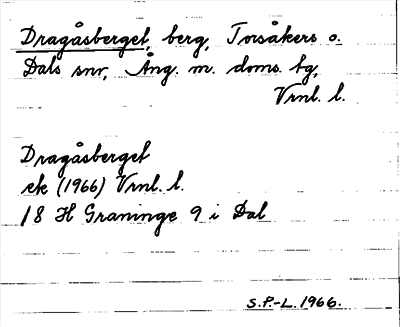 Dragåsberget, berg, Torsåkers o.
Dals snr, Ång. m. doms. tg,
Vrnl. l.
Dragåsberget
ek (1966) Vrnl. l.
18 H Graninge 9 i Dal
S.P.-L. 1966.